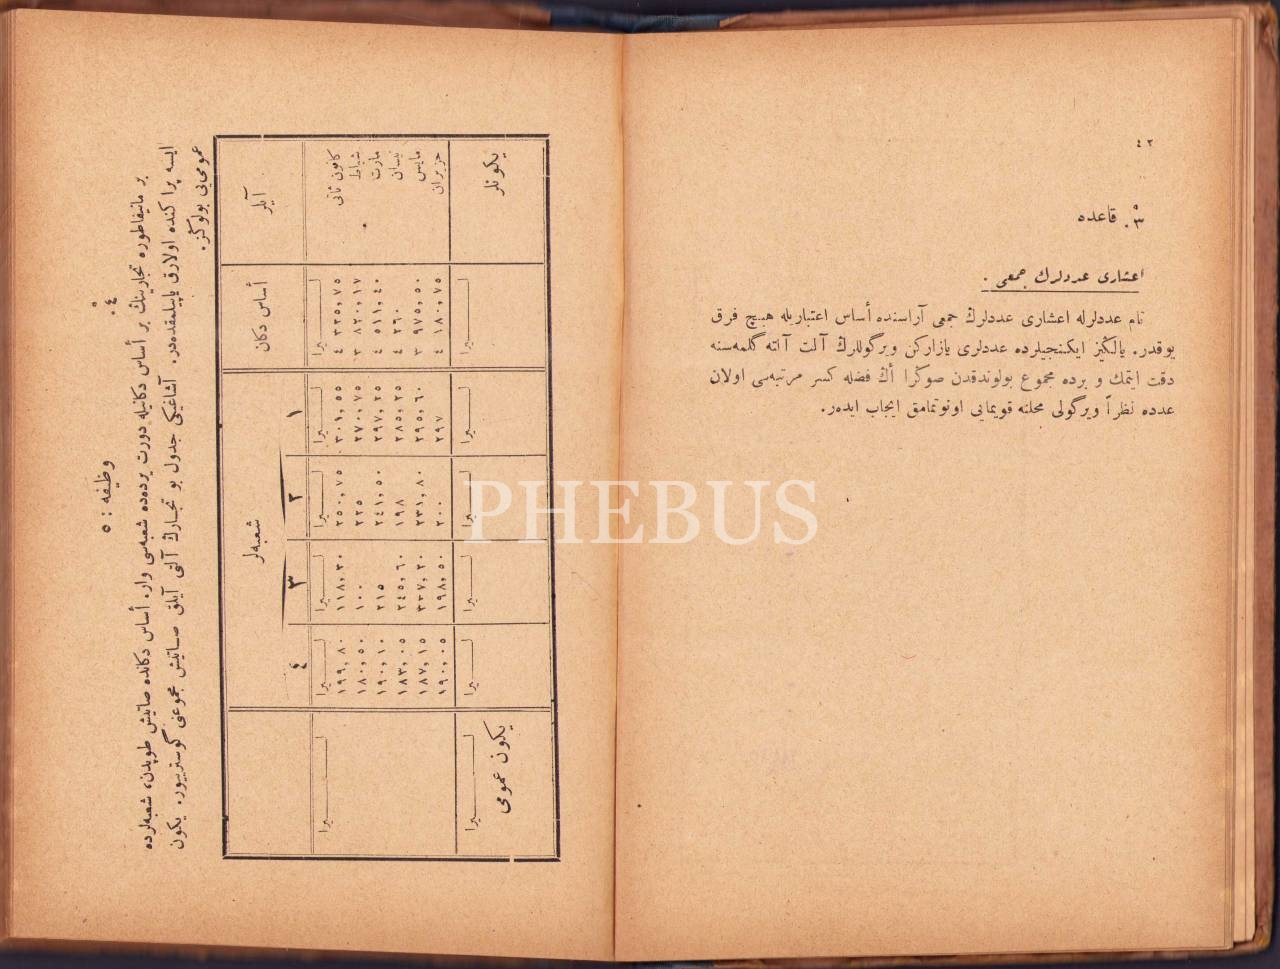 ٤٢
٣. قاعده
اعشاری عددلرك جمعی .
تام عددلرله اعشاری عددلرك جمعی آراسنده أساس اعتباریله هیچ فرق
یوقدر. یالكیز ایكنجیلرده عددلری یازاركن ویرگوللرك آلت آلته گلمه‌سنه
دقت ایتمك و برده مجموع بولوندقدن صوكرا أك فضله كسر مرتبه‌سی اولان
عدده نظراً ویرگولی محلنه قویمایی اونوتمامق ایجاب ایده‌ر.
PHEBUS
وظیفه : ٥
٤.
بر مانیفاطوره تجارینك بر أساس دكانیله دورت یرده‌ده شعبه‌سی وار. أساس دكانده صاتیش طوپدن، شعبه‌لرده
ایسه پراكنده اولارق یاپیلمقده‌در. آشاغیكی جدول بو تجارك آلتی آیلق صاتیش مجموعنی گوستریيور. یكون
عمومی‌یی بولوكز.
آیلر أساس دكان شعبه‌لر
١ ٢ ٣ ٤
لیرا لیرا لیرا لیرا لیرا لیرا
كانون ثانی ٤ ٣٢٥,٧٥ ٣٠١,٥٥ ٢٥٠,٧٥ ١١٨,٣٠ ١٩٩,٨٠
شباط ٣ ٨٢٠,١٧ ٢٧٠,٧٥ ٢٢٥ ١٠٠ ١٨٠,٥٠
مارت ٤ ٥١١,٤٠ ٢٩٧,٢٥ ٢٤١,٥٠ ٢١٥ ١٩٠,١٠
نیسان ٤ ٢٦٠ ٢٨٥,٢٥ ١٩٨ ٢٤٥,٦٠ ١٨٣,٠٥
مایس ٣ ٩٧٥,٥٠ ٢٩٥,٦٠ ٢٣١,٨٠ ٢٣٧,٢٠ ١٨٧,١٥
حزیران ٤ ١٨٠,٧٥ ٢٩٧ ٢٠٠ ١٩٨,٥٠ ١٩٠,٠٥
یكونلر لیرا لیرا لیرا لیرا لیرا لیرا یكون عمومی